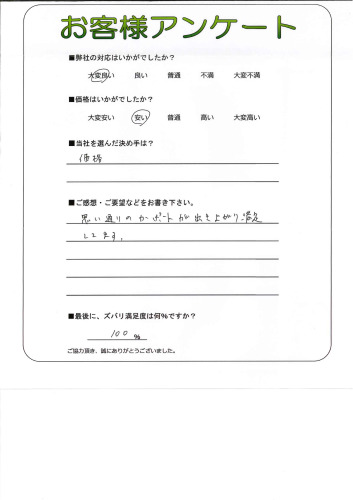 お客様アンケート
■弊社の対応はいかがでしたか?
大変良い 良い 普通 不満 大変不満
■価格はいかがでしたか?
大変安い 安い 普通 高い 大変高い
■当社を選んだ決め手は?
価格
■ご感想・ご要望などをお書き下さい。
思い通りのカーポートが出き上がり満足
してます。
■最後に、ズバリ満足度は何%ですか?
100 %
ご協力頂き、誠にありがとうございました。